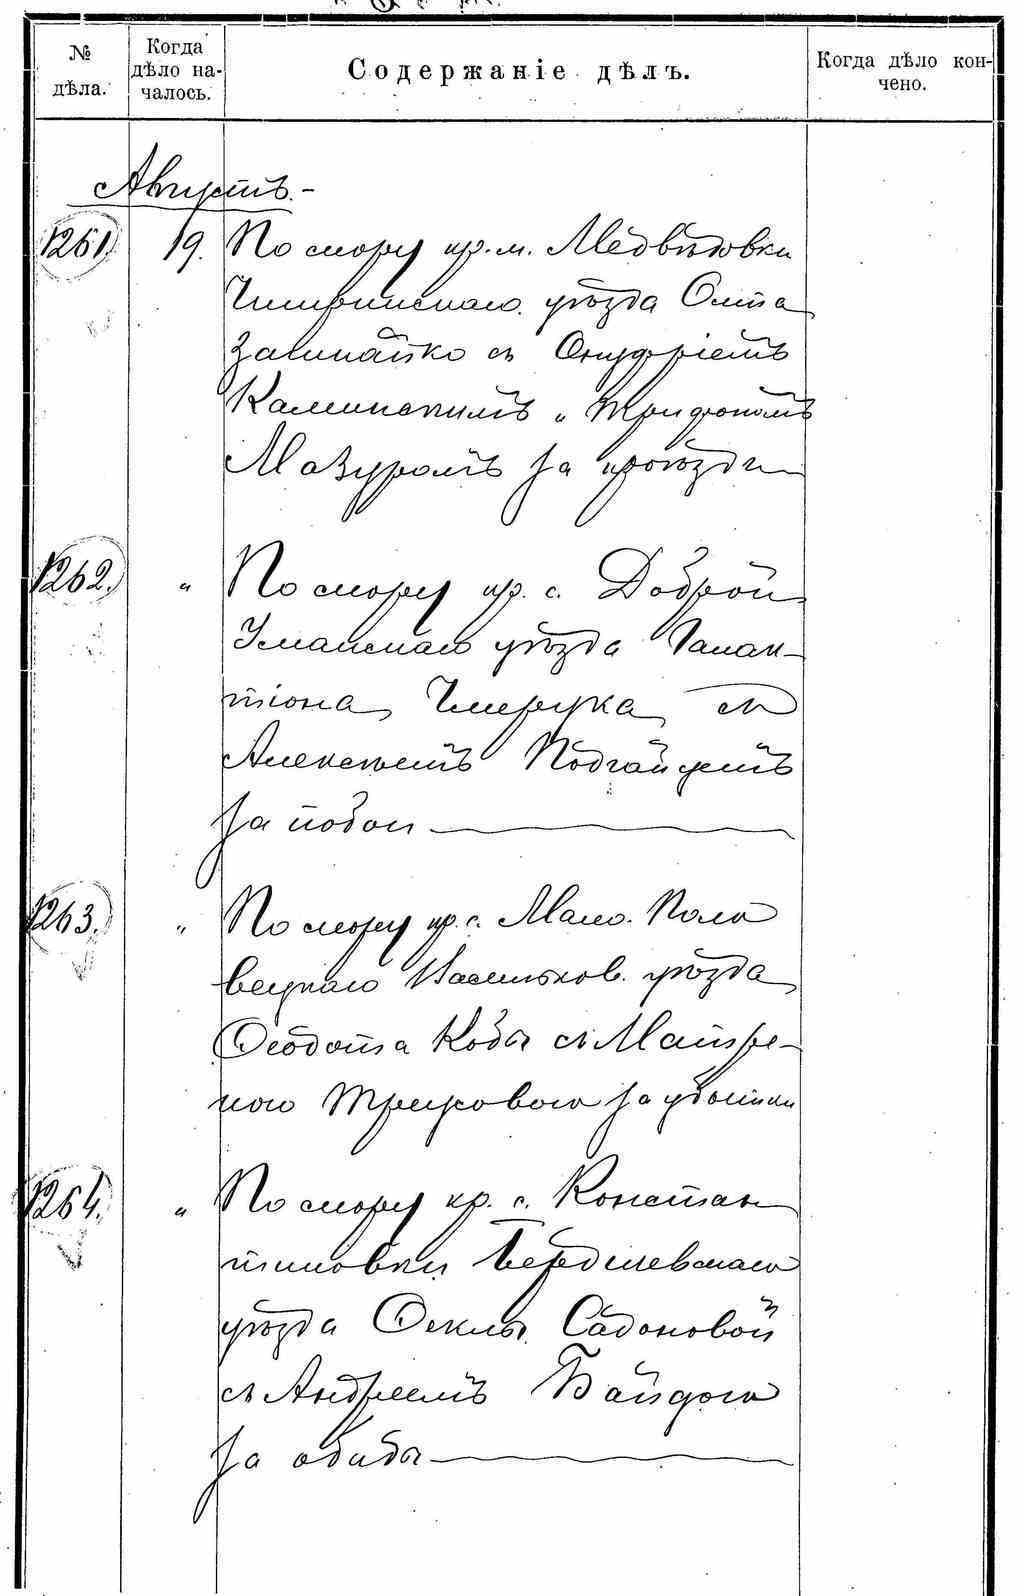 № дѣла.
Когда дѣло на-
чалось.
Содержаніе дѣлъ.
Когда дѣло кон-
чено.
Августъ.-
1261. 19. По спору кр. м. Медвѣдовки
Чигринскаго уѣзда Осипа
с Онуфріемъ
Каминскимъ и Трифономъ
Мазуромъ за
1262. " По спору кр. с. Доброй
Уманскаго уѣзда Галак-
тіона Чмерука съ
Алексѣемъ Подгайцемъ
за побои
1263. " По спору кр. с. Мало. Поло
вецкаго Васильков. уѣзда
Ѳеодота Кобы съ Матре-
ною за убытки
1264. " По спору кр. с. Констан
тиновки Бердичевскаго
уѣзда Ѳеклы Садоновой
съ Андреемъ Байдою
за обиды